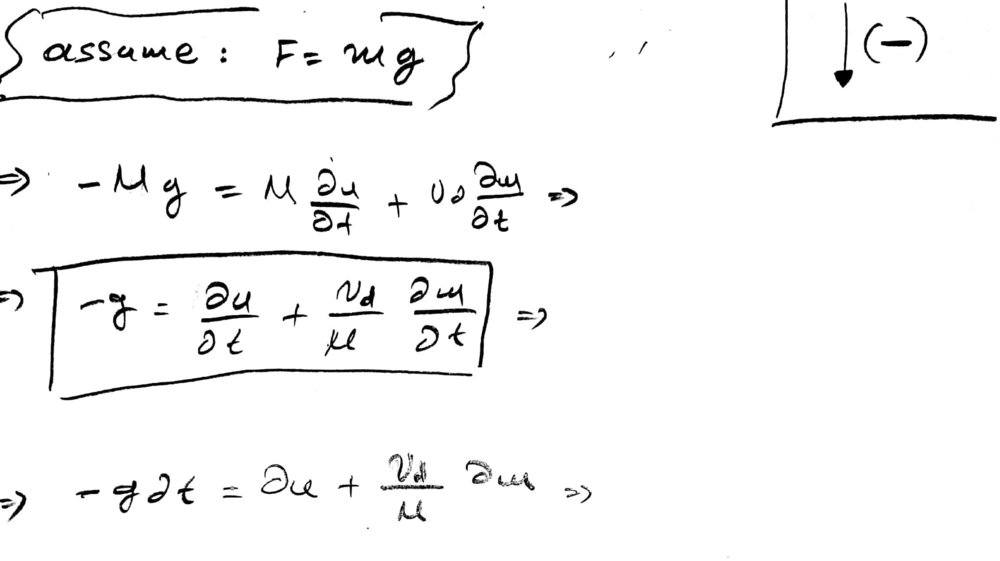 assume : F = mg
(-)
⇒ -Mg = M ∂u/∂t + υ∂ ∂m/∂t ⇒
⇒ -g = ∂u/∂t + υd/M ∂m/∂t ⇒
⇒ -g∂t = ∂u + υd/M ∂m ⇒